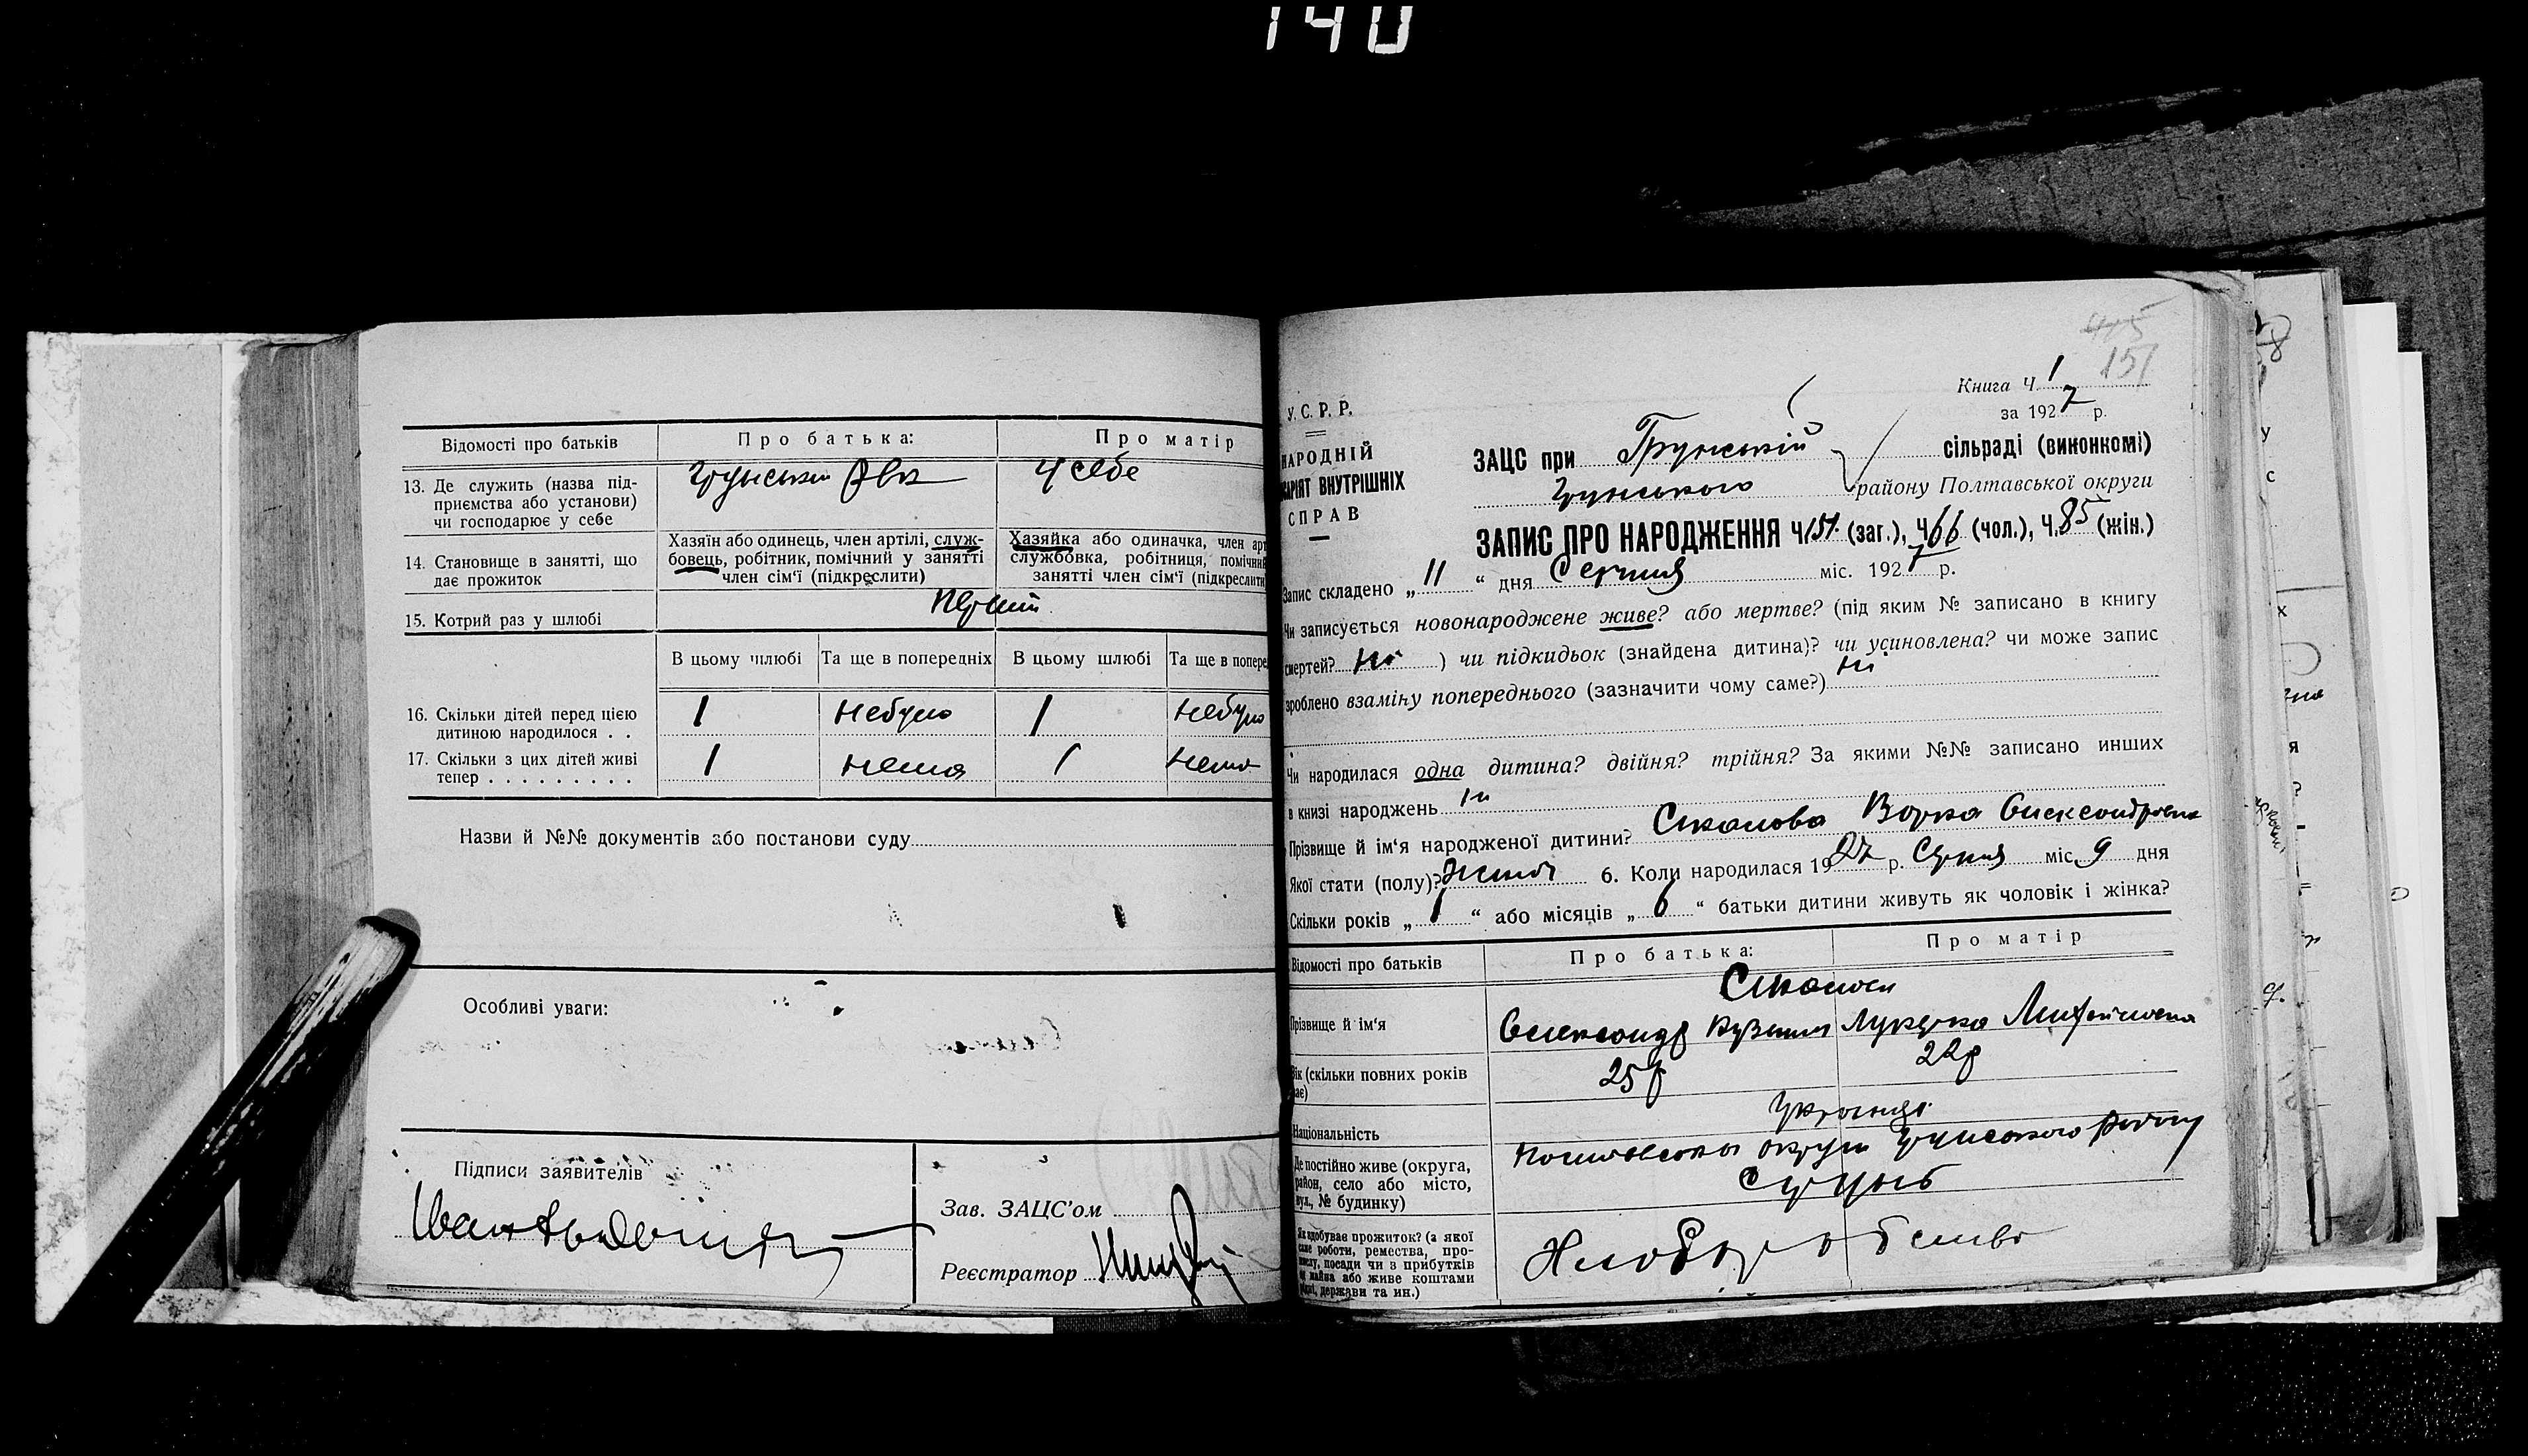 140
Відомості про батьків
Про батька:
Про матір
13. Де служить (назва під-
приємства або установи)
чи господарює у себе
У себе
14. Становище в занятті, що
дає прожиток
Хазяїн або одинець, член артілі, служ-
бовець, робітник, помічний у занятті
член сім'ї (підкреслити)
Хазяйка або одиначка, член арт
службовка, робітниця, помічний
занятті член сім'ї (підкреслити
15. Котрий раз у шлюбі
Перший
В цьому шлюбі
Та ще в попередніх
В цьому шлюбі
Та ще в попере
16. Скільки дітей перед цією
дитиною народилося . .
1 небуло 1 небуло
17. Скільки з цих дітей живі
тепер . . . . . . . . .
1 нема 1 нема
Назви й №№ документів або постанови суду
Особливі уваги:
Підписи заявителів
Іван
Зав. ЗАЦС'ом
Реєстратор
415
151
Книга Ч. 1
за 1927 р.
У. С. Р. Р.
НАРОДНІЙ
АРІЯТ ВНУТРІШНІХ
СПРАВ
ЗАЦС при Грунській сільраді (виконкомі)
Грунського району Полтавської округи
ЗАПИС ПРО НАРОДЖЕННЯ Ч. 151 (заг.), Ч. 66 (чол.), Ч. 85 (жін.)
Запис складено „ 11 “ дня Серпня міс. 1927 р.
Чи записується новонароджене живе? або мертве? (під яким № записано в книгу
смертей? Ні ) чи підкидьок (знайдена дитина)? чи усиновлена? чи може запис
зроблено взаміну попереднього (зазначити чому саме?) Ні
Чи народилася одна дитина? двійня? трійня? За якими №№ записано инших
в книзі народжень Ні
Прізвище й ім'я народженої дитини?
Якої стати (полу)? 6. Коли народилася 1927 р. Серпня міс. 9 дня
Скільки років „ 1 “ або місяців „ 6 “ батьки дитини живуть як чоловік і жінка?
Відомості про батьків
Про батька:
Про матір
Прізвище й ім'я
Олександр Кузьмич
Вік (скільки повних років
має)
25 р
22 р
Національність
Українці
Де постійно живе (округа,
район, село або місто,
вул., № будинку)
Полтавської округи Грунського району
Як здобуває прожиток? (з якої
саме роботи, ремества, про-
мислу, посади чи з прибутків
від майна або живе коштами
рідні, держави та ин.)
Хлоборобство